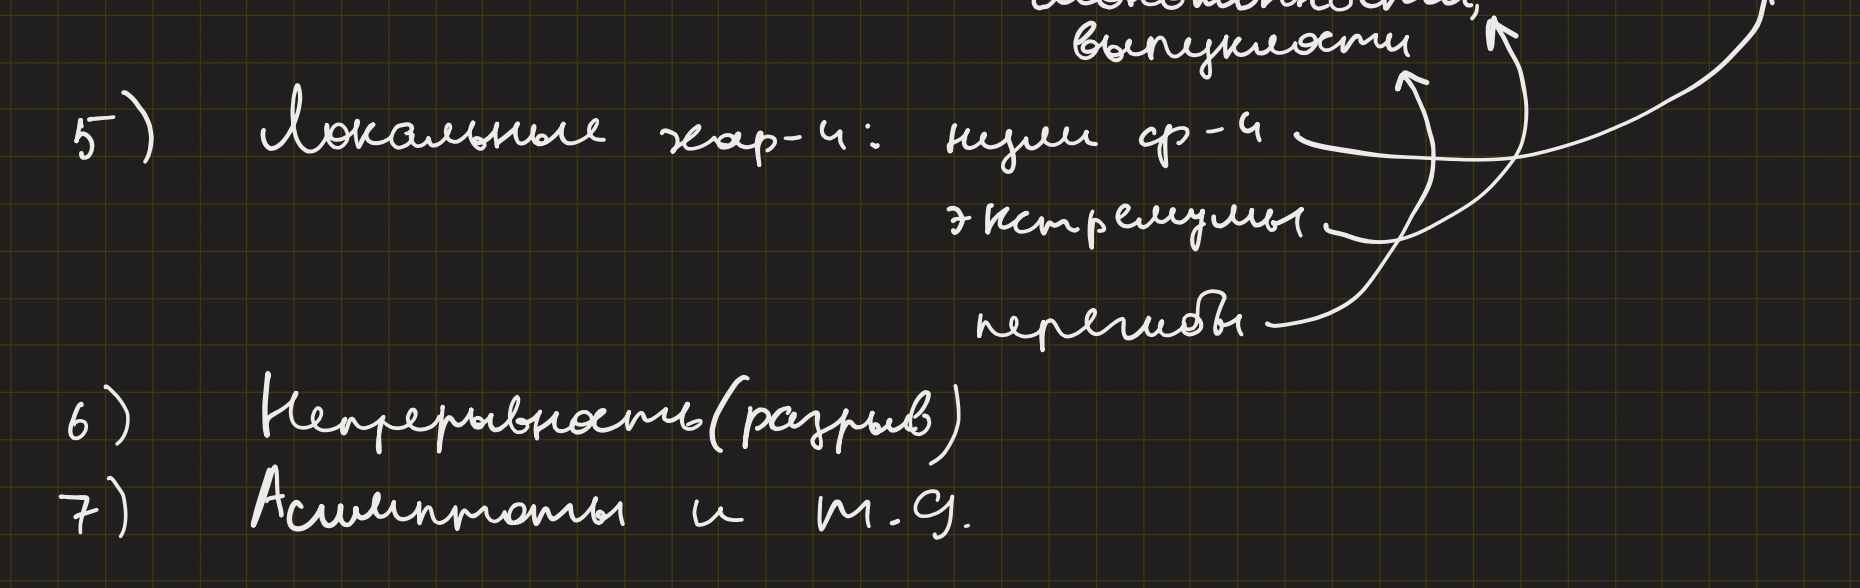 монотонности,
выпуклости
5) Локальные хар-ч: нули ф-ч
экстремумы
перегибы
6) Непрерывность (разрыв)
7) Асимптоты и т.д.